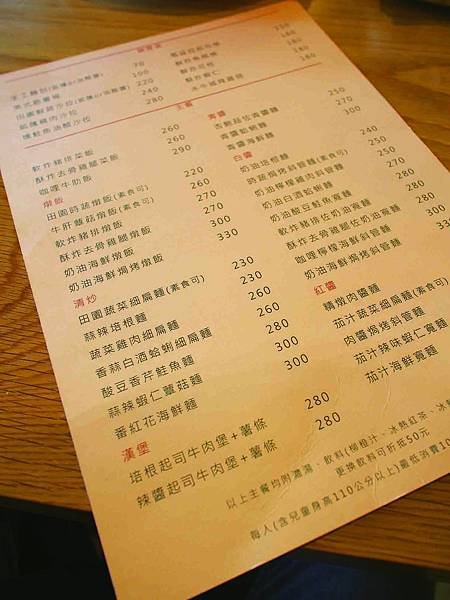 70
100
220
240
280
180
180
180
主餐
軟炸豬排菜飯 260
酥炸去骨雞腿菜飯 260
咖哩牛肋飯 290
燉飯
田園時蔬燉飯(素食可) 220
牛肝蕈菇燉飯(素食可) 260
軟炸豬排燉飯 270
酥炸去骨雞腿燉飯 270
奶油海鮮燉飯 300
奶油海鮮焗烤燉飯 330
清炒
田園蔬菜細扁麵(素食可) 230
蒜辣培根麵 230
蔬菜雞肉細扁麵 260
香蒜白酒蛤蜊細扁麵 260
酸豆香芹鮭魚麵 280
蒜辣蝦仁蕈菇麵 280
番紅花海鮮麵 300
漢堡
培根起司牛肉堡+薯條 280
辣醬起司牛肉堡+薯條 280
青醬
青醬蛤蜊麵 270
青醬海鮮麵 300
白醬
奶油培根麵 240
時蔬焗烤斜管麵(素食可) 250
奶油檸檬雞肉斜管麵
奶油白酒蛤蜊麵
奶油酸豆鮭魚寬麵
軟炸豬排佐奶油寬麵
酥炸去骨雞腿佐奶油寬麵
咖哩檸檬海鮮斜管麵
奶油海鮮焗烤斜管麵
紅醬
精燉肉醬麵
茄汁蔬菜細扁麵(素食可)
肉醬焗烤斜管麵
茄汁辣味蝦仁寬麵
茄汁海鮮寬麵
以上主餐均附濃湯、飲料(柳橙汁、冰熱紅茶、冰熱
更換飲料可折抵50元
每人(含兒童身高110公分以上)最低消費10